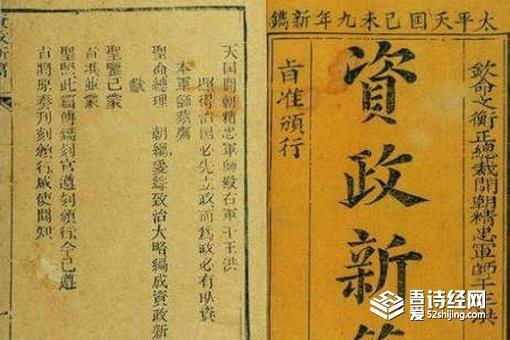 太平天囯己未九年新鐫
欽命文衡正總裁開朝精忠軍師干王洪
資政新
旨准頒行
天囯開朝精忠軍師殿右軍干王洪
照得治囯必先立政而為政必有取資
本軍師恭膺
聖命總理 朝綱爰綜致治大略編成資政新
獻
聖鑒已蒙
旨准並蒙
聖照此篇傳鐫刻官遵刻頒行今已遵
旨將原奏刊刻頒行咸使聞知
資政新篇
一
吾诗经网
52shijing.com